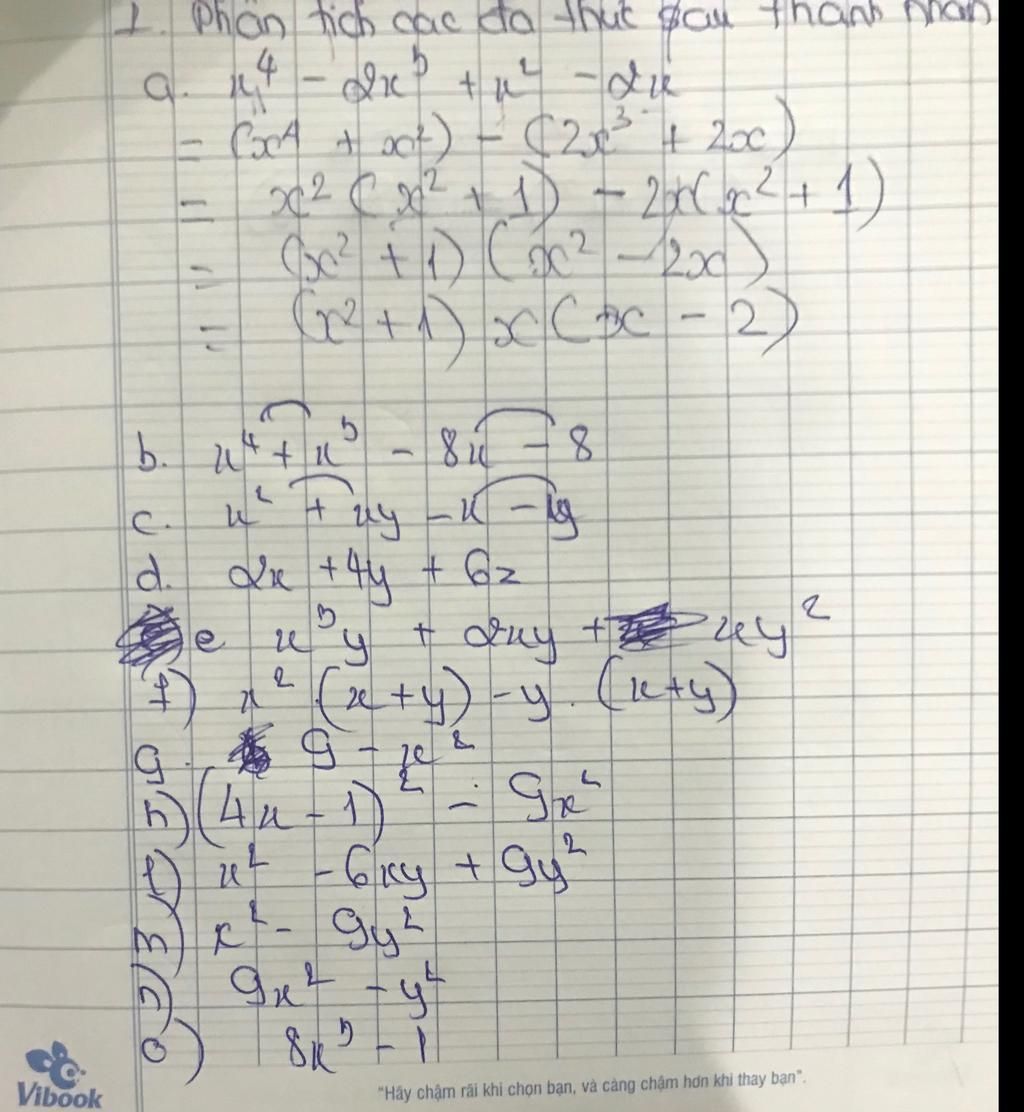 1. Phân tích các đa thức sau thành nhân
a. x⁴ - 2x³ + x² - 2x
= (x⁴ + x²) - (2x³ + 2x)
= x² (x² + 1) - 2x(x² + 1)
= (x² + 1) (x² - 2x)
= (x² + 1) x (x - 2)
b. x⁴ + x³ - 8x - 8
c. x² + xy - x - y
d. 2x + 4y + 6z
e x³y + 2xy + xy²
f) x² (x+y) - y. (x+y)
g. 9 - x²
h) (4x - 1)² - 9x²
x² - 6xy + 9y²
x² - 9y²
9x² - y²
o) 8x³ - 1
Vibook
"Hãy chậm rãi khi chọn bạn, và càng chậm hơn khi thay bạn".